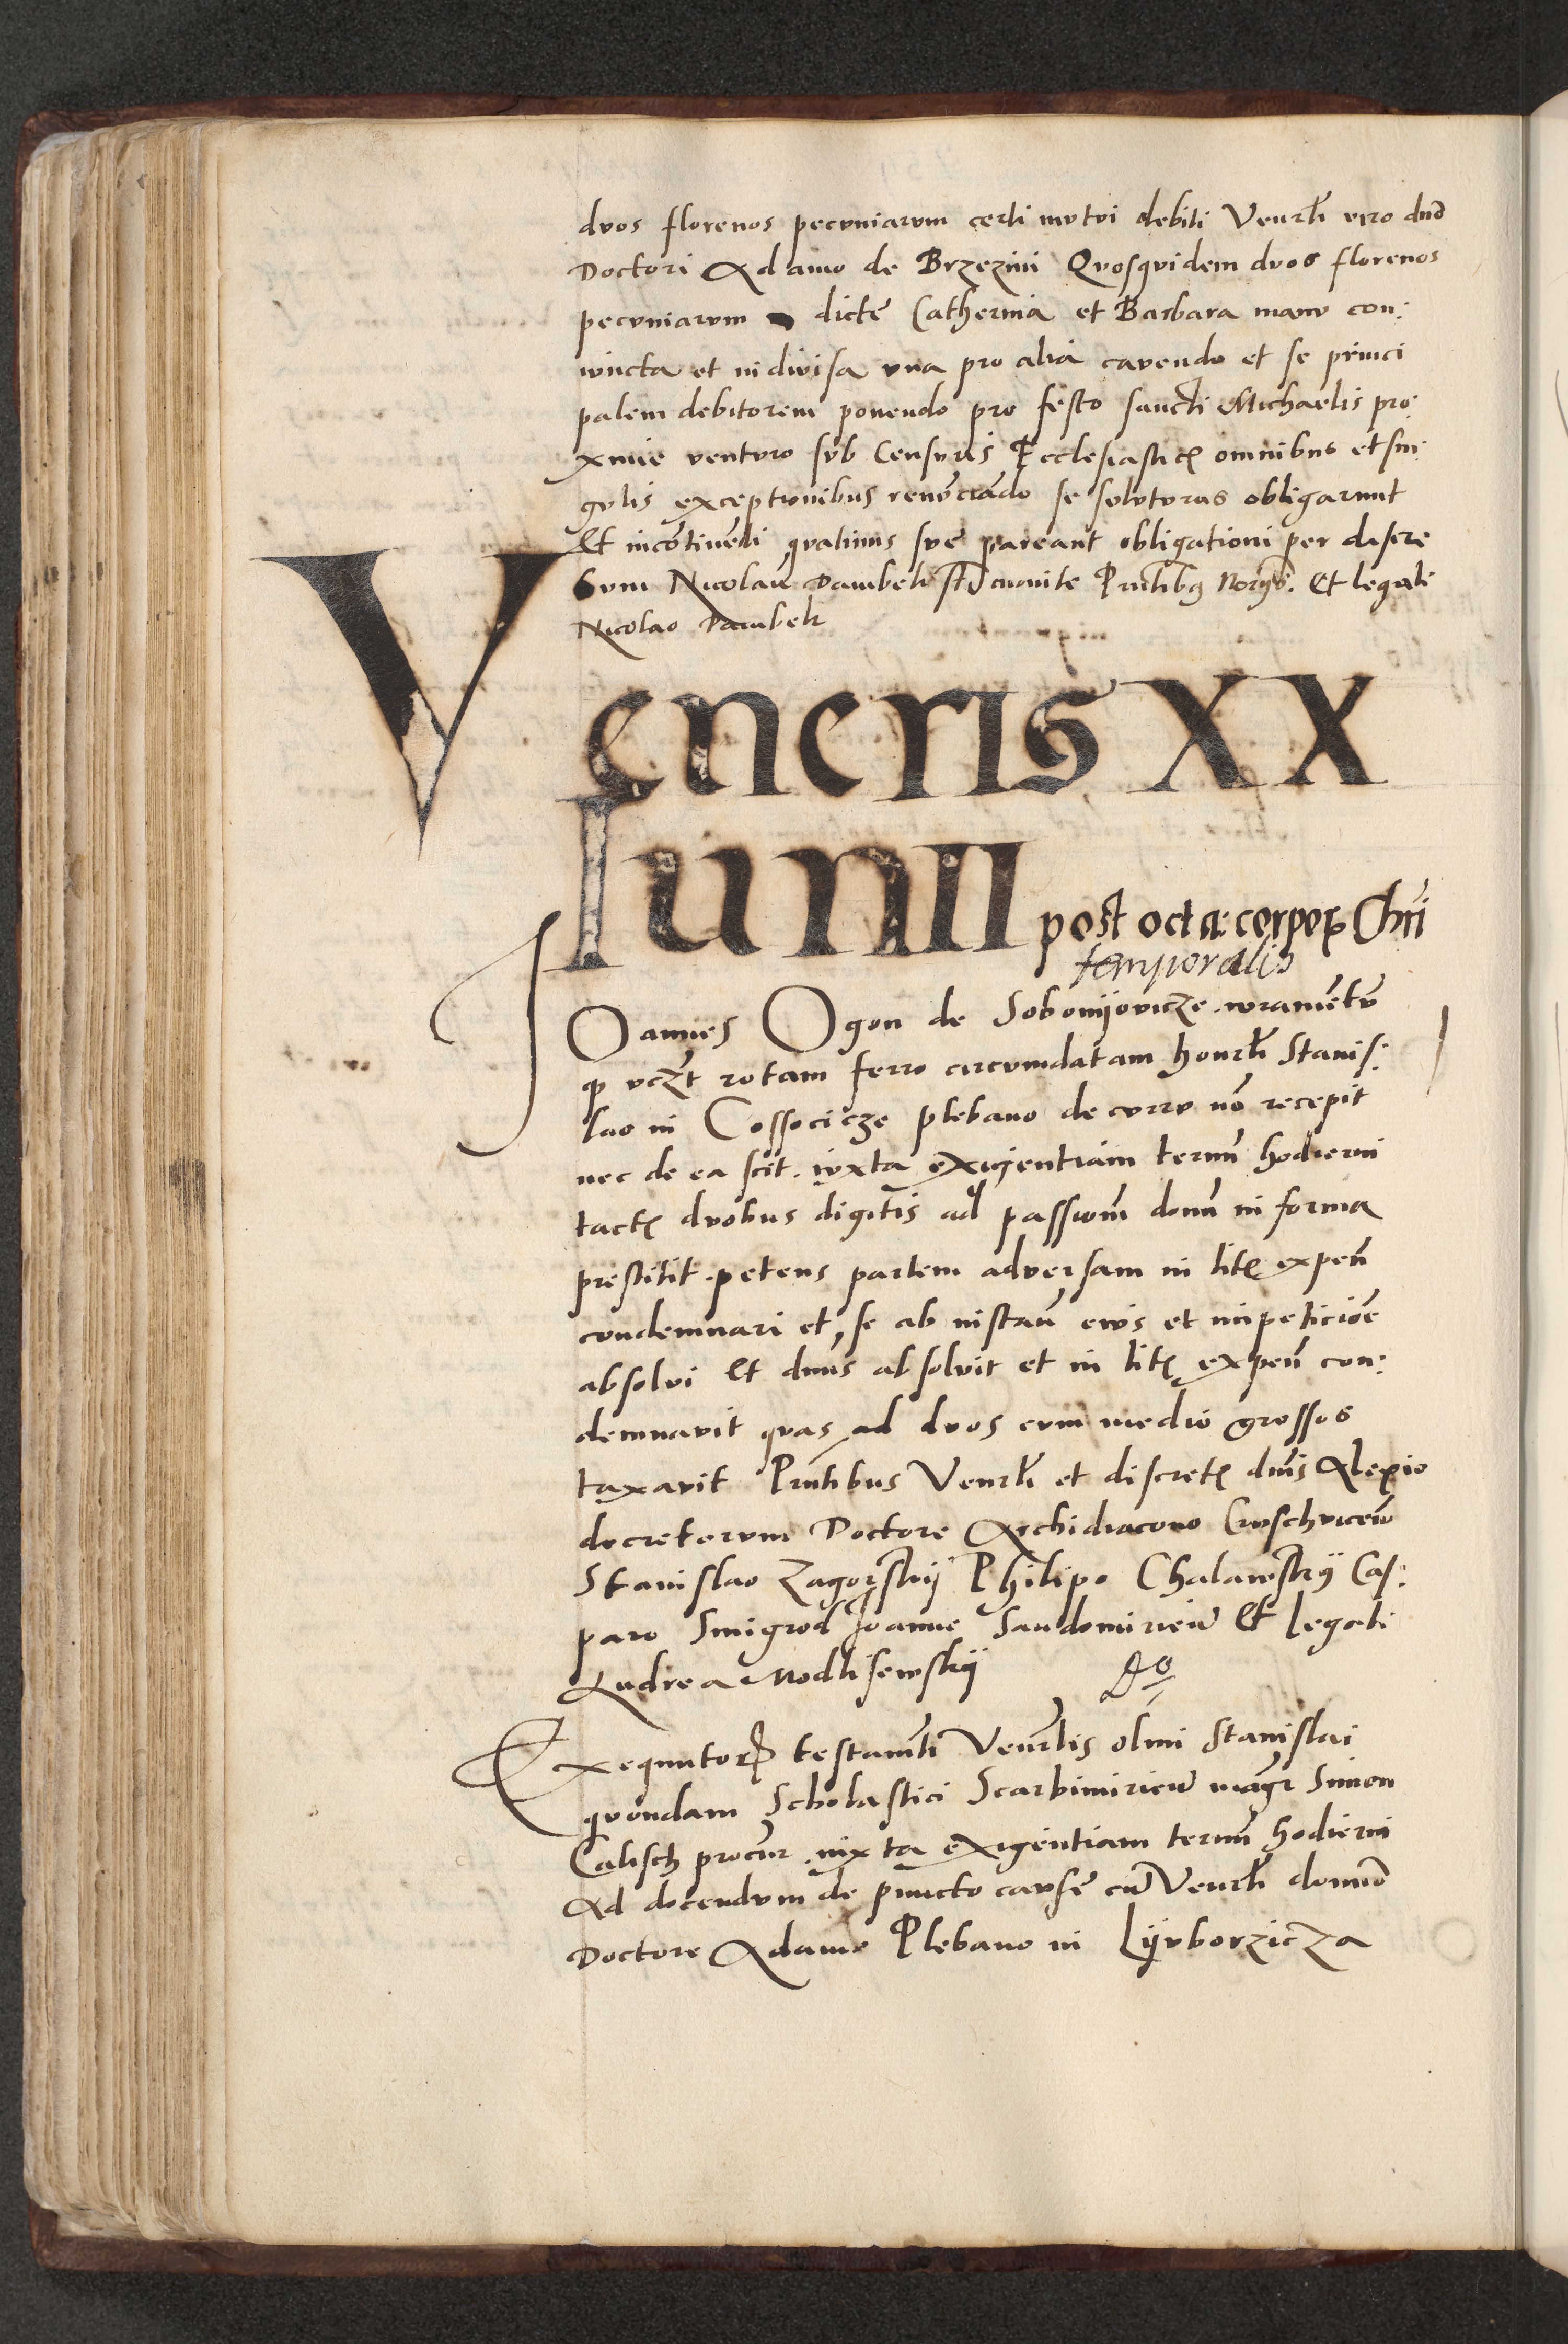 dvos florenos pecvniarvm certi mvtvi debiti Venrli viro dno
Doctori Adamo de Brzezini Qvosqvidem dvos florenos
pecvniarvm dicte Catherina et Barbara manv con:
ivncta et indivisa vna pro alia cavendo et se princi
palem debitorem ponendo pro festo sancti Michaelis pro:
xime ventvro svb Censvris Ecclesiasticis omnibvs et sin
gvlis exceptionibvs renvnciando se solvtvras obligarvnt
Et incontinenti qvatinvs sve pareant obligationi per discre
tvm Nicolavm Dambek monite Pntibvs Norijs. Et legali
Nicolao Dambek
Veneris XX
Iunii post octa: corporis Chri
temporalis
Joannes Ogon de Sobonijovicze ivramentv
qz vczt rotam ferro circvmdatam honrli Stanis:
lao in Cossocicze plebano de cvrrv no recepit
nec de ea scit. ivxta exigentiam termi hodierni
tactis dvobvs digitis ad passionem domi in forma
prestitit. petens partem adversam in litis expen
condemnari et se ab instan eivs et impeticioe
absolvi Et dnvs absolvit et in litis expen con:
demnavit qvas ad dvos cvm medio grossos
taxavit Pntibvs Venrli et discretis dnis Alexio
decretorvm Doctore Archidiacono Crvschvicen
Stanislao Zagorskij Philipo Chalawskij Cas:
paro Smigrod Joanne Sandomirien Et legali
Andrea Modlisewskij
Exequutores testamenti Venrlis olim Stanislai
qvondam Scholastici Scarbimirien magr Simon
Calisch procvr ivxta exigentiam termi hodierni
Ad docendvm de pvncto cavse cvm Venrli domino
Doctore Adamo Plebano in Lijvborzicza